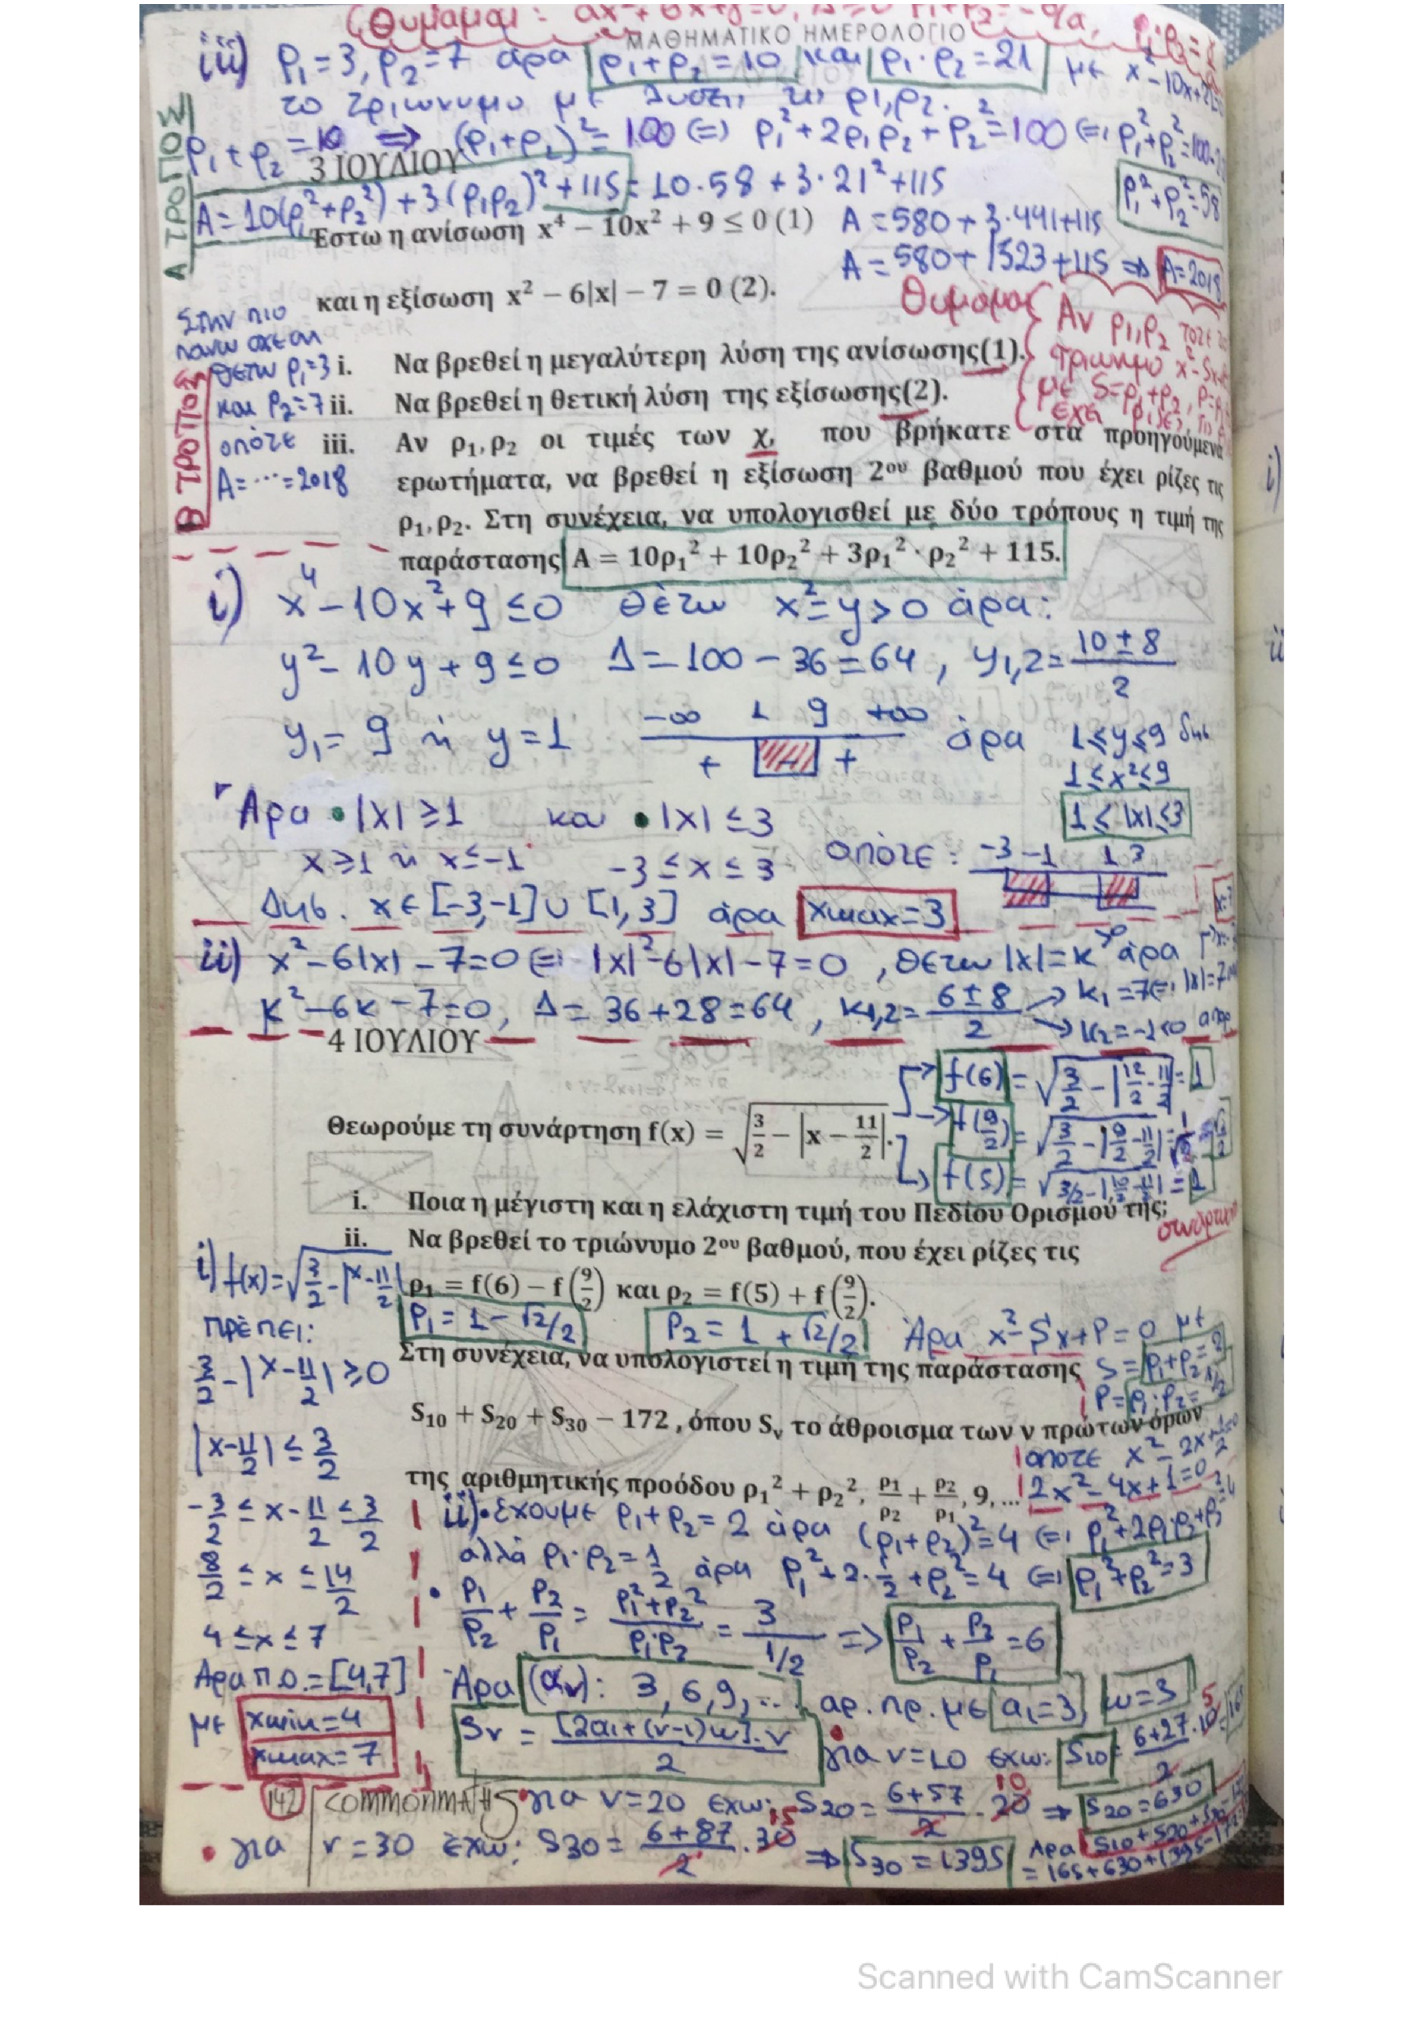 (Θυμάμαι:
ΜΑΘΗΜΑΤΙΚΟ ΗΜΕΡΟΛΟΓΙΟ
iii) ρ₁=3, ρ₂=7 άρα ρ₁+ρ₂=10 και ρ₁·ρ₂=21 με x²-10x+21=0
το τριώνυμο με λύσεις τις ρ₁,ρ₂.
ρ₁+ρ₂=10 ⇒ (ρ₁+ρ₂)²=100 (=) ρ₁²+2ρ₁ρ₂+ρ₂²=100 (=)
Α ΤΡΟΠΟΣ
3 ΙΟΥΛΙΟΥ
ρ₁²+ρ₂²=58
A=10(ρ₁²+ρ₂²)+3(ρ₁ρ₂)²+115=10·58+3·21²+115
Έστω η ανίσωση x⁴ − 10x² + 9 ≤ 0 (1)
A=580+3·441+115
A=580+1323+115 ⇒ A=2018
και η εξίσωση x² − 6|x| − 7 = 0 (2).
Θυμάμαι Αν ρ₁,ρ₂ τότε
τριώνυμο
με S=ρ₁+ρ₂
έχει
Στην πιο
πάνω σχέση
θέτω ρ₁=3
και ρ₂=7
οπότε
A=...=2018
Β ΤΡΟΠΟΣ
i. Να βρεθεί η μεγαλύτερη λύση της ανίσωσης(1).
ii. Να βρεθεί η θετική λύση της εξίσωσης(2).
iii. Αν ρ₁, ρ₂ οι τιμές των χ, που βρήκατε στα προηγούμενα
ερωτήματα, να βρεθεί η εξίσωση 2ου βαθμού που έχει ρίζες τις
ρ₁, ρ₂. Στη συνέχεια, να υπολογισθεί με δύο τρόπους η τιμή της
παράστασης A = 10ρ₁² + 10ρ₂² + 3ρ₁² · ρ₂² + 115.
i) x⁴-10x²+9≤0 θέτω x²=y>0 άρα:
y²-10y+9≤0 Δ=100-36=64, y₁,₂=(10±8)/2
y₁=9 ή y=1 -∞ 1 9 +∞ άρα 1≤y≤9 δηλ.
+ - +
1≤x²≤9
1≤|x|≤3
Άρα • |x|≥1 και • |x|≤3
x≥1 ή x≤-1 -3≤x≤3 οπότε: -3 -1 1 3
Δηλ. x∈[-3,-1]∪[1,3] άρα xmax=3
ii) x²-6|x|-7=0 (=) |x|²-6|x|-7=0, θέτω |x|=κ>0 άρα
κ²-6κ-7=0, Δ=36+28=64, κ₁,₂=(6±8)/2 → κ₁=7
→ κ₂=-1<0 απορ
4 ΙΟΥΛΙΟΥ
f(6)=√(3/2-|12/2-11/2|)=1
Θεωρούμε τη συνάρτηση f(x) = √(3/2 − |x − 11/2|).
f(9/2)=√(3/2-|9/2-11/2|)
f(5)=√(3/2-|10/2-11/2|)=1
i. Ποια η μέγιστη και η ελάχιστη τιμή του Πεδίου Ορισμού της;
ii. Να βρεθεί το τριώνυμο 2ου βαθμού, που έχει ρίζες τις
ρ₁ = f(6) − f(9/2) και ρ₂ = f(5) + f(9/2).
ρ₁=1-√2/2 ρ₂=1+√2/2 Άρα x²-Sx+P=0 με
S=ρ₁+ρ₂=2
P=ρ₁·ρ₂=1/2
Στη συνέχεια, να υπολογιστεί η τιμή της παράστασης
S₁₀ + S₂₀ + S₃₀ − 172, όπου Sᵥ το άθροισμα των ν πρώτων όρων
οπότε x²-2x+1/2=0
της αριθμητικής προόδου ρ₁² + ρ₂², ρ₁/ρ₂ + ρ₂/ρ₁, 9, ...
2x²-4x+1=0
i) f(x)=√(3/2-|x-11/2|)
πρέπει:
3/2-|x-11/2|≥0
|x-11/2|≤3/2
-3/2≤x-11/2≤3/2
8/2≤x≤14/2
4≤x≤7
Άρα Π.Ο.=[4,7]
με xmin=4
xmax=7
ii) • έχουμε ρ₁+ρ₂=2 άρα (ρ₁+ρ₂)²=4 (=) ρ₁²+2ρ₁ρ₂+ρ₂²=4
αλλά ρ₁·ρ₂=1/2 άρα ρ₁²+2·1/2+ρ₂²=4 (=) ρ₁²+ρ₂²=3
• ρ₁/ρ₂+ρ₂/ρ₁=(ρ₁²+ρ₂²)/(ρ₁ρ₂)=3/(1/2) => ρ₁/ρ₂+ρ₂/ρ₁=6
Άρα (αᵥ): 3,6,9,... αρ. πρ. με α₁=3 ω=3
Sᵥ=[2α₁+(ν-1)ω]·ν/2
για ν=10 έχω: S₁₀=(6+27)/2·10 5 =165
142 COMMONMATHS
• για ν=20 έχω: S₂₀=(6+57)/2·20 10 ⇒ S₂₀=630
• για ν=30 έχω: S₃₀=(6+87)/2·30 15 ⇒ S₃₀=1395 Άρα S₁₀+S₂₀+S₃₀-172
=165+630+1395-172
Scanned with CamScanner